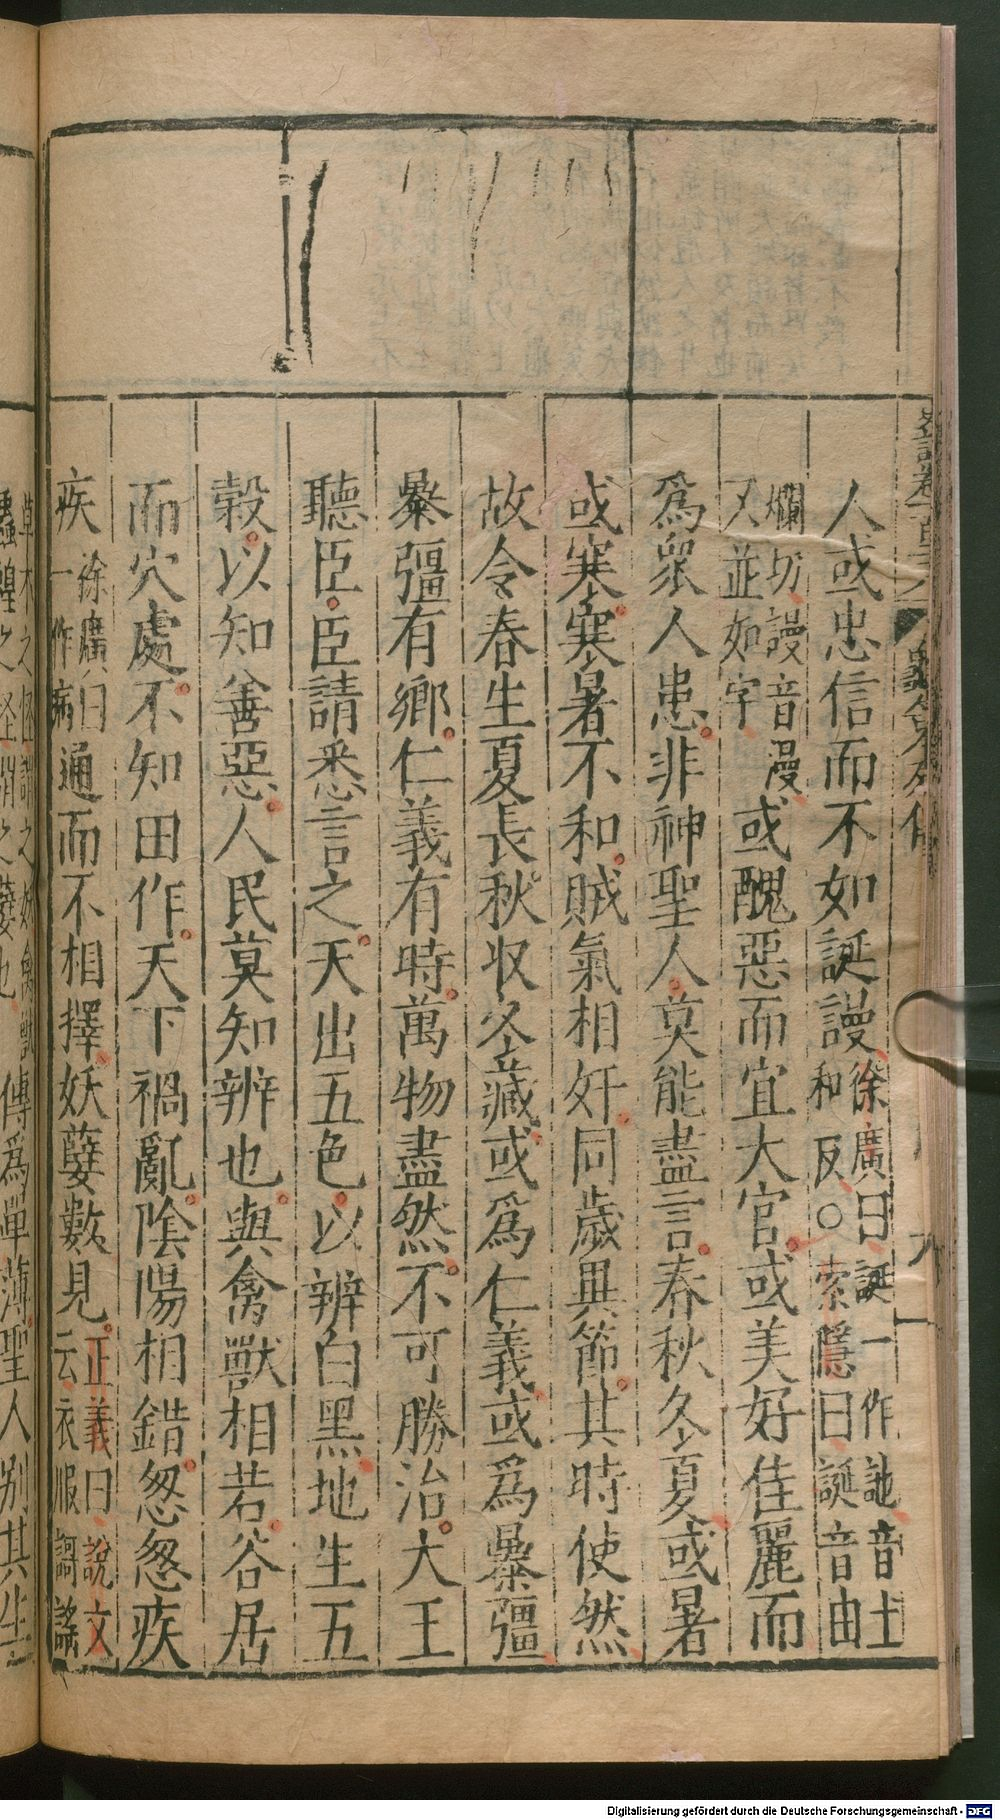 人或忠信而不如誕謾徐廣曰誕一作訑音土和反○索隱曰誕音由
爛切謾音漫又並如字或醜惡而宜大官或美好佳麗而
爲眾人患非神聖人莫能盡言春秋冬夏或暑
或寒寒暑不和賊氣相奸同歲異節其時使然
故令春生夏長秋收冬藏或爲仁義或爲暴彊
暴彊有鄉仁義有時萬物盡然不可勝治大王
聽臣臣請悉言之天出五色以辨白黑地生五
穀以知善惡人民莫知辨也與禽獸相若谷居
而穴處不知田作天下禍亂陰陽相錯怱怱疾
疾徐廣曰一作病通而不相擇妖孽數見正義曰說文云衣服謌謠
草木之怪謂之妖禽獸蟲蝗之怪謂之孽也傳爲單薄聖人別其生
Digitalisierung gefördert durch die Deutsche Forschungsgemeinschaft - DFG